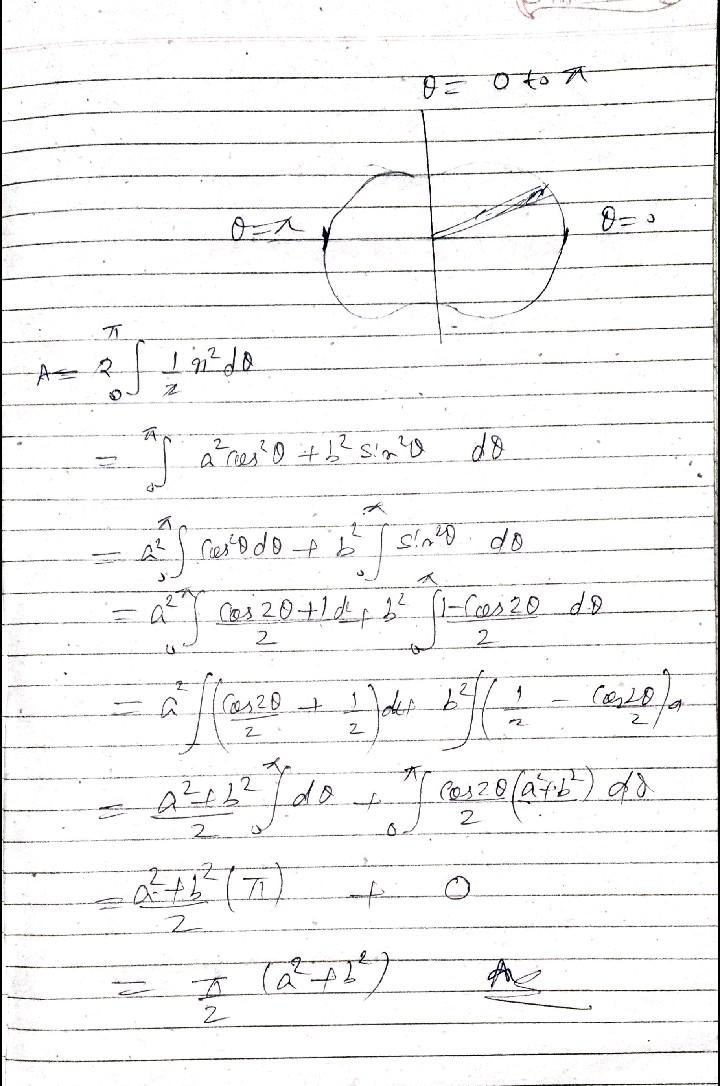 θ = 0 to π
θ=π
θ=0
A= 2 ∫₀^π 1/2 r² dθ
= ∫₀^π a² cos²θ + b² sin²θ dθ
= a² ∫₀^π cos²θ dθ + b² ∫₀^π sin²θ dθ
= a² ∫₀^π (cos 2θ + 1)/2 d + b² ∫₀^π (1 - cos 2θ)/2 dθ
= a² ∫ (cos2θ/2 + 1/2) dθ + b² ∫ (1/2 - cos2θ/2) θ
= (a²+b²)/2 ∫₀^π dθ + ∫₀^π cos2θ/2 (a²+b²) dθ
= (a²+b²)/2 (π) + 0
= π/2 (a²+b²)